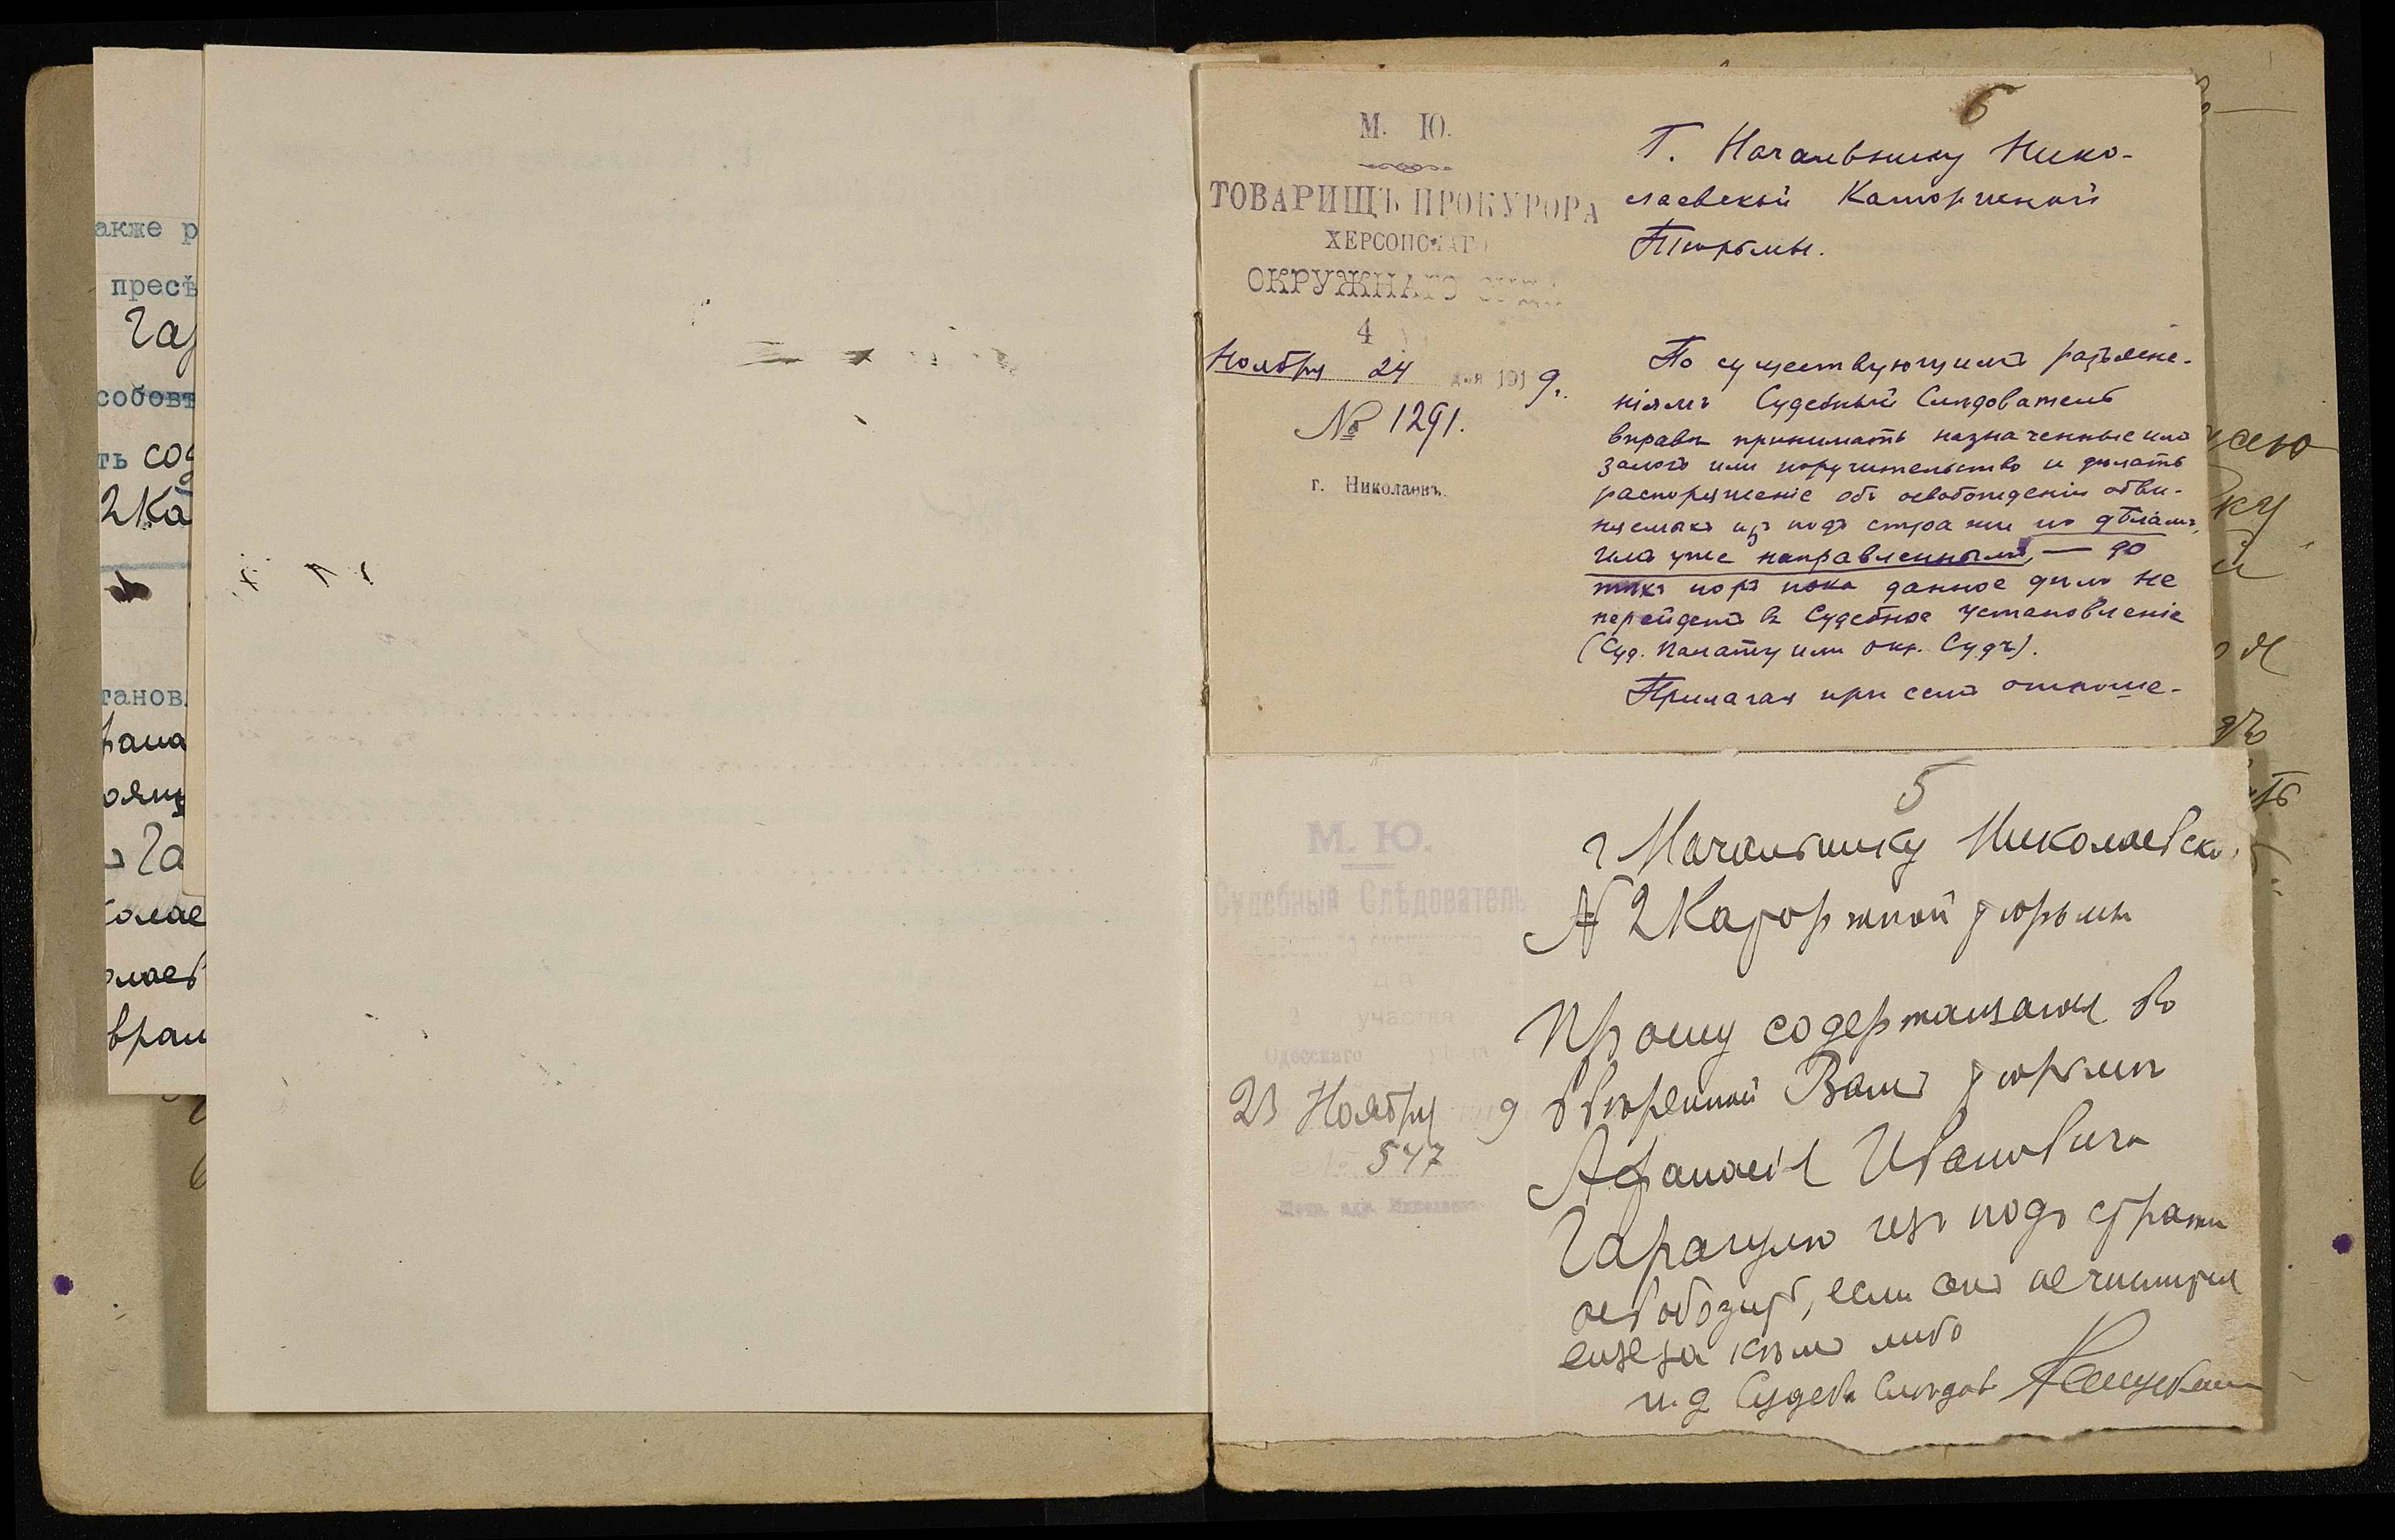 акже р
пресѣ
Гар
собовъ
ть сод
2 Ка
танов
фана
оящ
Га
колае
олаев
врал
6
М. Ю.
ТОВАРИЩЪ ПРОКУРОРА
ХЕРСОНСКАГО
ОКРУЖНАГО СУДА
4
Ноября 24 дня 1919 г.
№ 1291.
г. Николаевъ.
Г. Начальнику Нико-
лаевской Каторжной
Тюрьмы.
По существующимъ разъясне-
ніямъ Судебный Слѣдователь
вправѣ принимать назначенные имъ
залогъ или поручительство и дѣлать
распоряженіе объ освобожденіи обви-
няемыхъ изъ подъ стражи по дѣламъ,
имъ уже направленнымъ, — до
тѣхъ поръ пока данное дѣло не
перейдетъ въ Судебное Установленіе
(Суд. Палату или Окр. Судъ).
Прилагая при семъ отноше-
5
М. Ю.
Судебный Слѣдователь
участка
Одесскаго
23 Ноября 9
547
г Начальнику Николаевской
№ 2 Каторжной тюрьмы
Прошу содержащагося во
ввѣренной Вамъ тюрьмѣ
Афанасія Ивановича
Гарагулю изъ подъ стражи
освободить, если онъ не числится
еще за кѣмъ либо
и. д Судебн Слѣдов